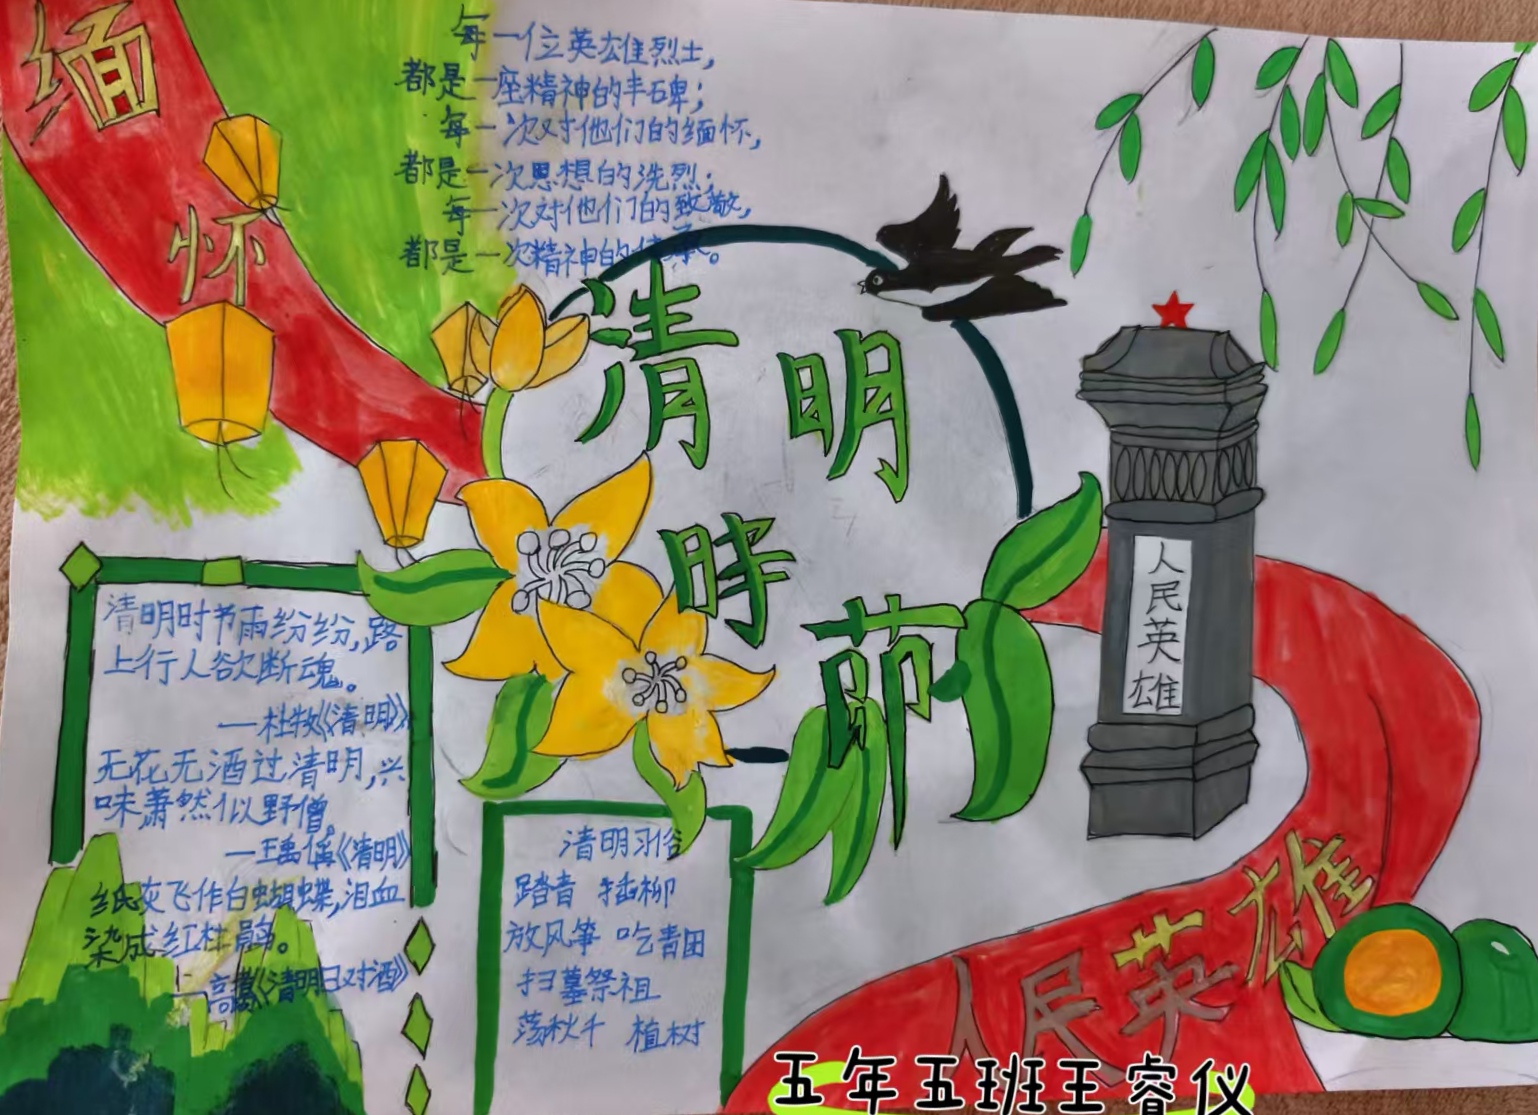 缅
怀
每一位英雄烈士,
都是一座精神的丰碑;
每一次对他们的缅怀,
都是一次思想的洗烈;
每一次对他们的致敬,
都是一次精神的传承。
清明
时节
人民英雄
清明时节雨纷纷,路
上行人欲断魂。
——杜牧《清明》
无花无酒过清明,兴
味萧然似野僧。
——王禹偁《清明》
纸灰飞作白蝴蝶,泪血
染成红杜鹃。
——高翥《清明日对酒》
清明习俗
踏青 插柳
放风筝 吃青团
扫墓祭祖
荡秋千 植树
人民英雄
五年五班王睿仪